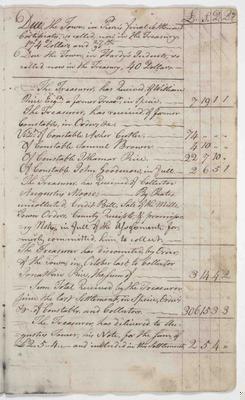 £ S D
Due the Town in Pierces final settlement
Certificates, so called now in the Treasury
174 Dollars and
Due the Town in Hardy's Indents, so
called now in the Treasury, 40 Dollars
The Treasurer, has Received of William
Rice Esqr. a former Treasr. in Specie 7 19 1 1
The Treasurer, has received of former
Constables in Orders &c.
Of Constable Asher 74
Of Constable Samuel Brown 4 10
Of Constable Ithamar Rice 22 7 10
Of Constable John Goodnow, in Full 2 6 5 1
The Treasurer has Received of Collector
Augustus Moore, By Rates
uncollected Credit Bills, Sale of the Mills
Town Orders County Receipts & promissory
Notes, in Full of the Assessments formerly
committed him to collect
The Treasurer has discounted by Order
of the Town, in October last to Collector
Jonathan Rice, the sum of 3 14 4 2
Sum Total Received by the Treasurer
since the last Settlement, in Specie, Orders
&c. of Constables, and Collectors 306 15 3 3
The Treasurer has delivered to the
his Note, for the sum of
£2..5..4 and included in this settlement 2 5 4